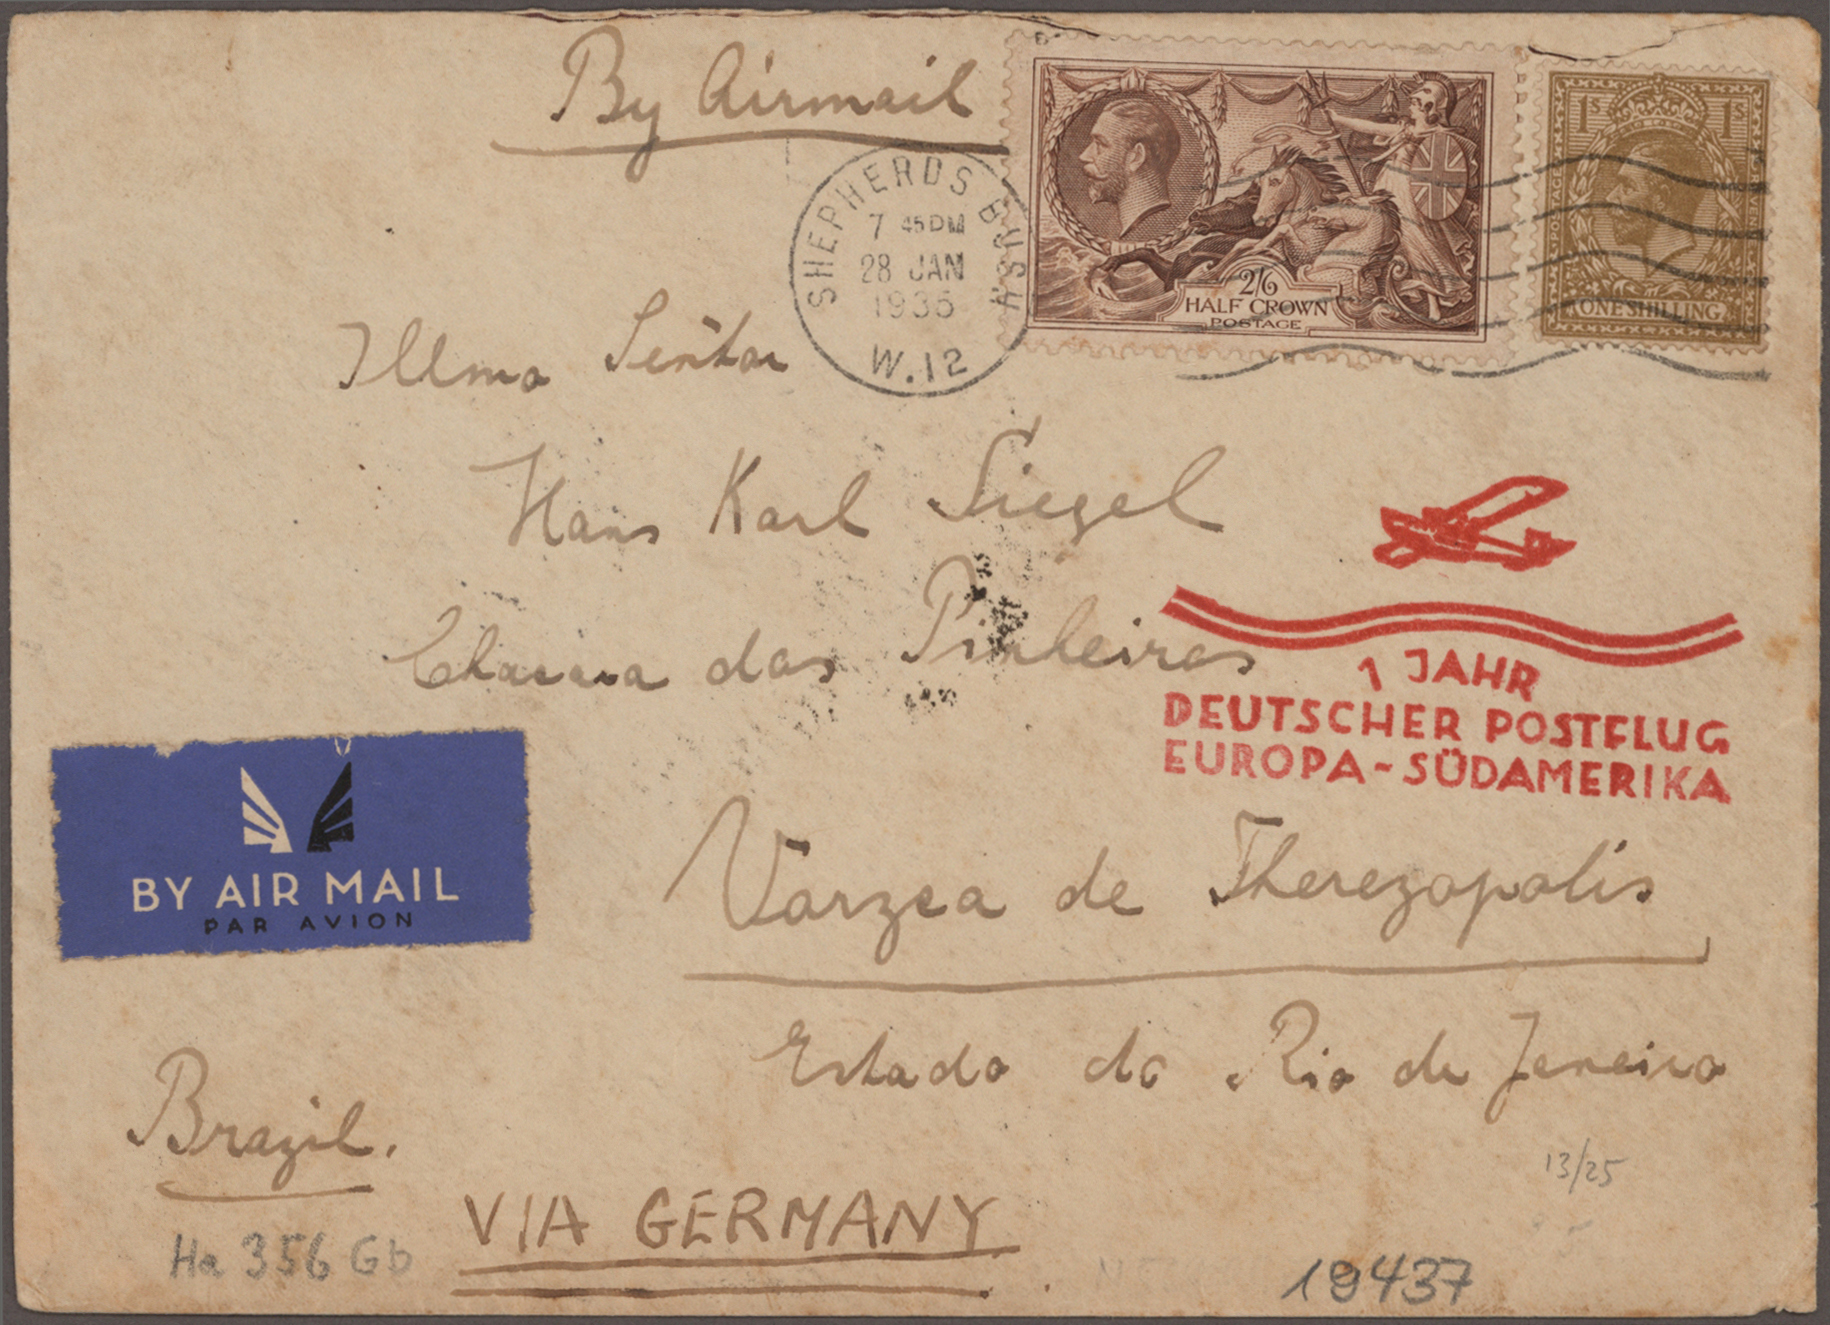 By Airmail
SHEPHERDS BUSH
7 45 PM
28 JAN
1935
W.12
2/6
HALF CROWN
POSTAGE
1s 1s
POSTAGE
ONE SHILLING
Illmo Senhor
Hans Karl Siegel
Chacara das Pinheiros
1 JAHR
DEUTSCHER POSTFLUG
EUROPA-SÜDAMERIKA
BY AIR MAIL
PAR AVION
Varzea de Therezopolis
Estado do Rio de Janeiro
Brazil.
13/25
VIA GERMANY
Ha 356 Gb
19437